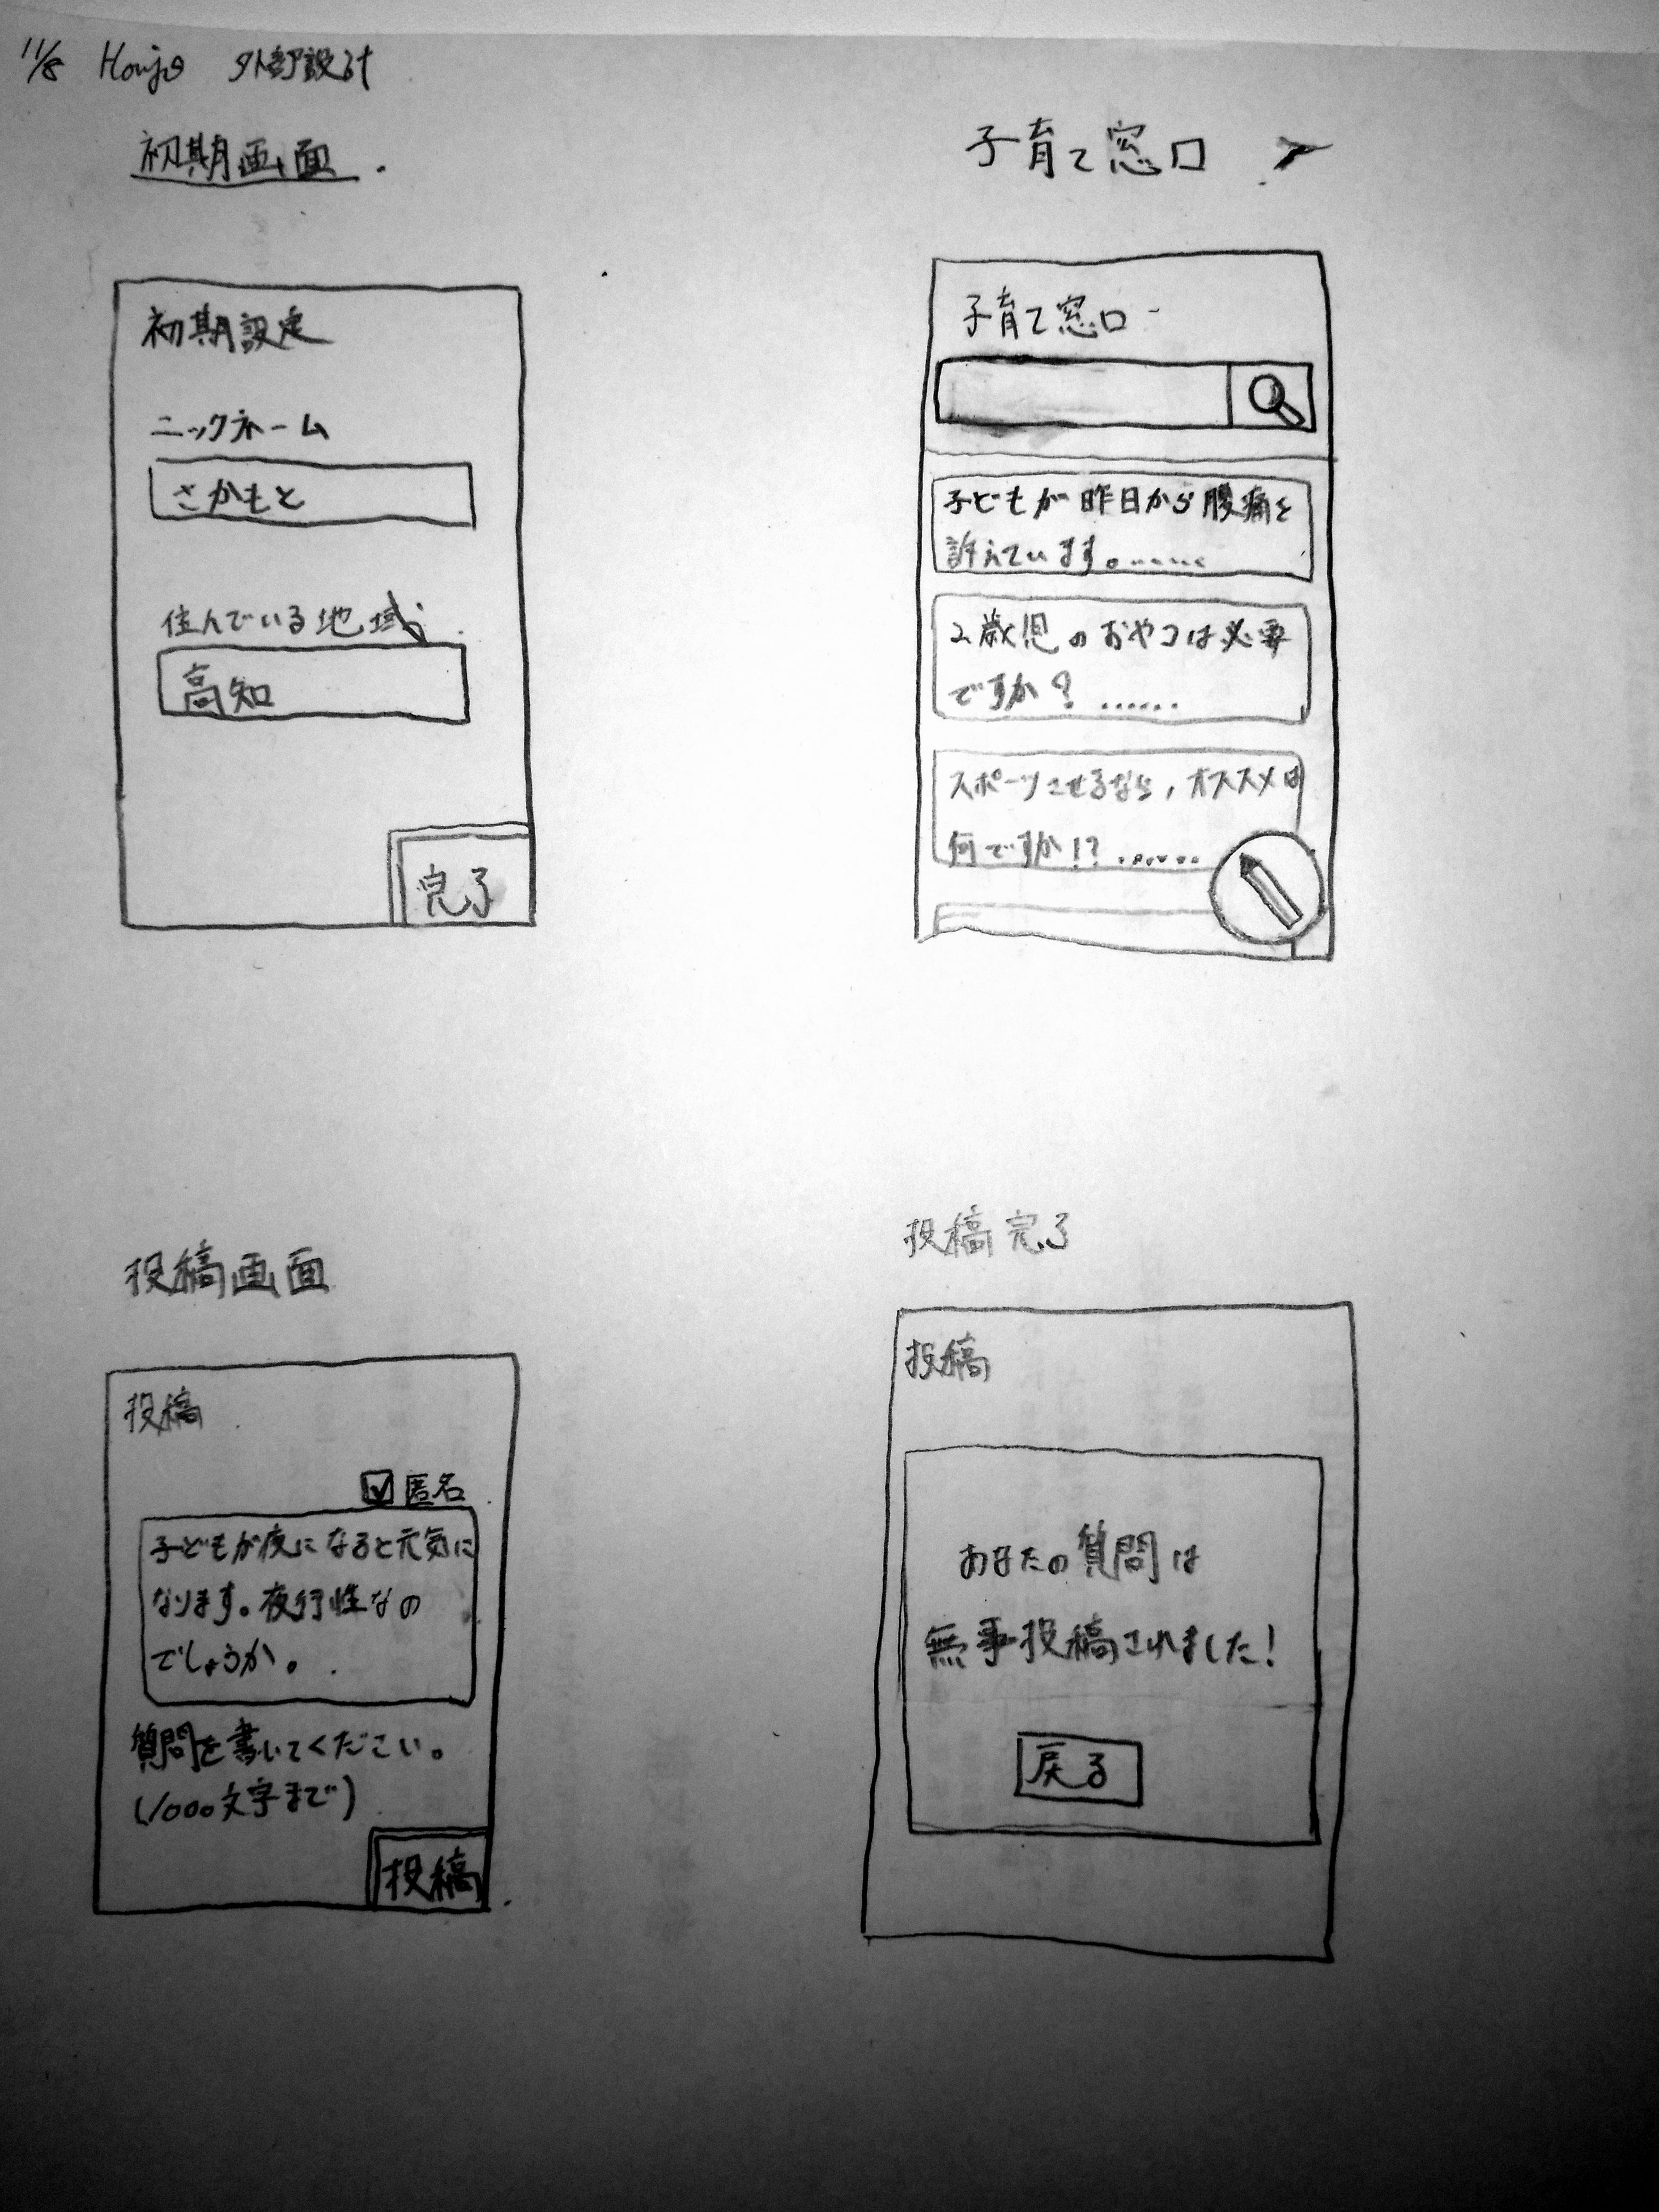 11/8 Honjo 外部設計
初期画面
初期設定
ニックネーム
さかもと
住んでいる地域
高知
完了
子育て窓口
子育て窓口
子どもが昨日から腹痛を
訴えています。......
2歳児のおやつは必要
ですか? ......
スポーツさせるなら,オススメは
何ですか!? ......
投稿画面
投稿
匿名
子どもが夜になると元気に
なります。夜行性なの
でしょうか。
質問を書いてください。
(1000文字まで)
投稿
投稿完了
投稿
あなたの質問は
無事投稿されました!
戻る